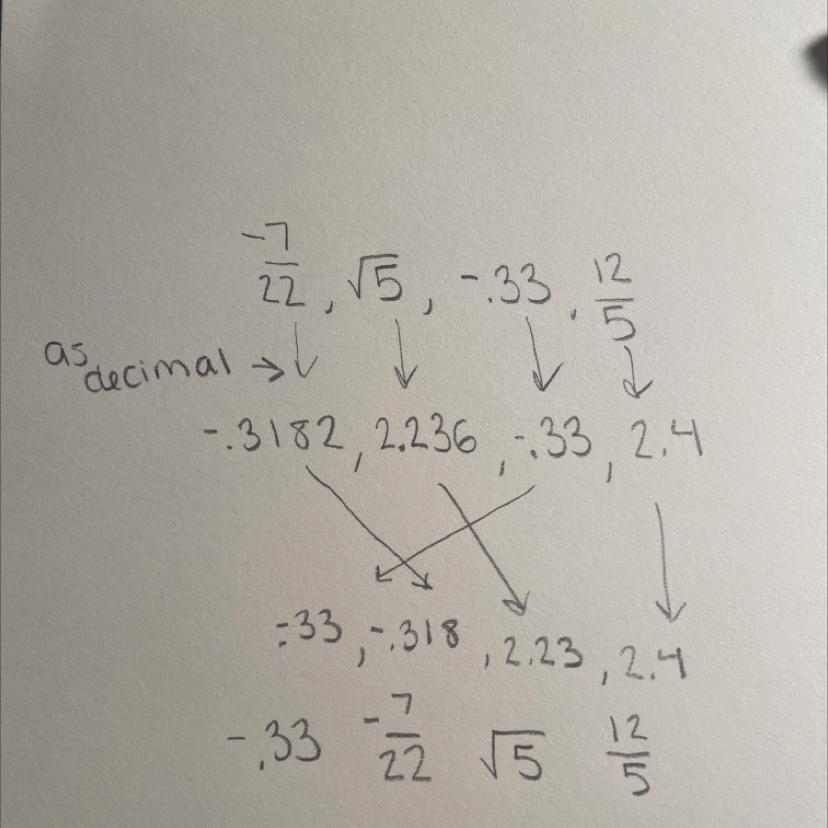 -7/22, √5, -.33, 12/5
as decimal →
-.3182, 2.236, -.33, 2.4
-.33, -.318, 2.23, 2.4
-.33 -7/22 √5 12/5